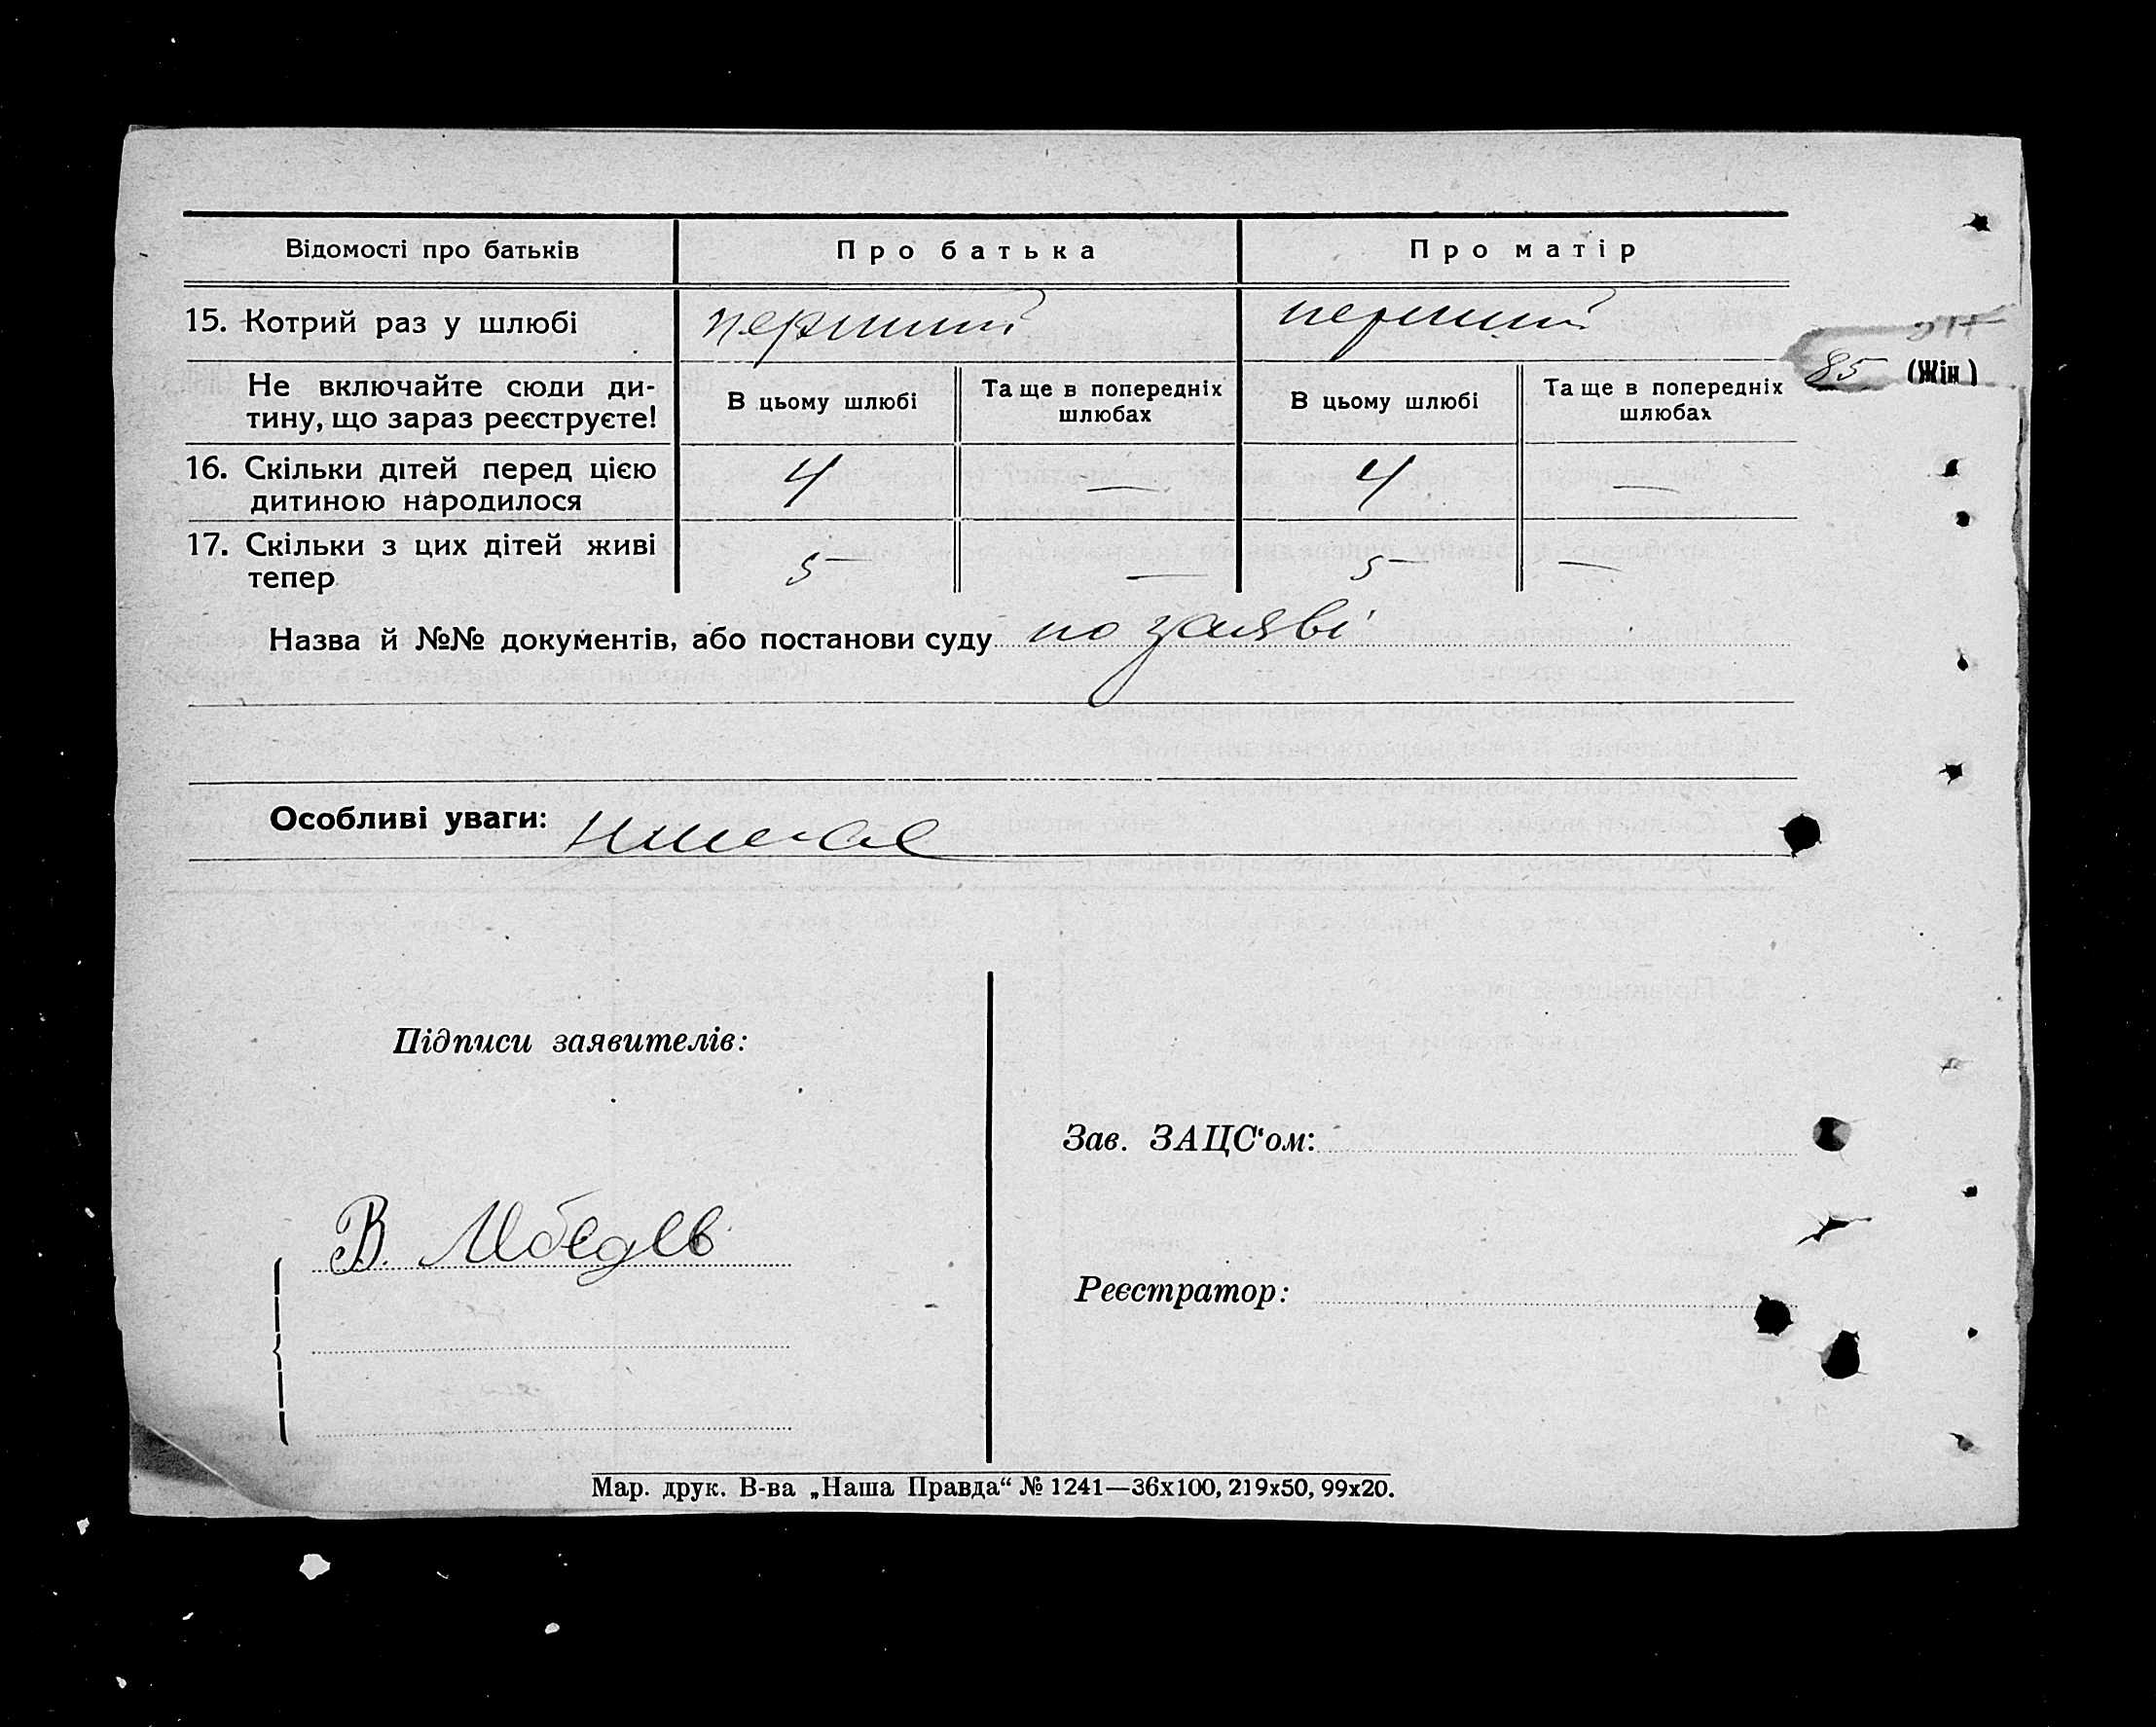 Відомості про батьків Про батька Про матір
15. Котрий раз у шлюбі перший перший
Не включайте сюди ди-
тину, що зараз реєструєте!
В цьому шлюбі
Та ще в попередніх
шлюбах
В цьому шлюбі
Та ще в попередніх
шлюбах
85 (Жін.)
16. Скільки дітей перед цією
дитиною народилося
4 — 4 —
17. Скільки з цих дітей живі
тепер
5 — 5 —
Назва й №№ документів, або постанови суду по заяві
Особливі уваги:
Підписи заявителів:
Зав. ЗАЦС‘ом:
В. Лебедев
Реєстратор:
Мар. друк. В-ва „Наша Правда“ № 1241—36х100, 219х50, 99х20.